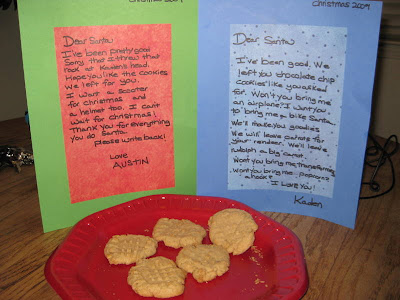 Christmas 2009
Dear Santa
I've been pretty good
Sorry that I threw that
rock at Kaden's head.
Hope you like the cookies
We left for you.
I want a scooter
for christmas and
a helmet too. I can't
wait for christmas!
Thank you for everything
you do Santa.
Please write back!
Love
AUSTIN
Christmas 2009
Dear Santa,
I've been good. We
left you chocolate chip
cookies like you asked
for. Won't you bring me
an airplane? I want you
to bring me a bike Santa.
We'll make you goodies
We will leave carrots for
your reindeer. We'll leave
rudolph a big carrot.
Want you bring me transformers
Want you bring me
a hook?
I Love You!
Kaden